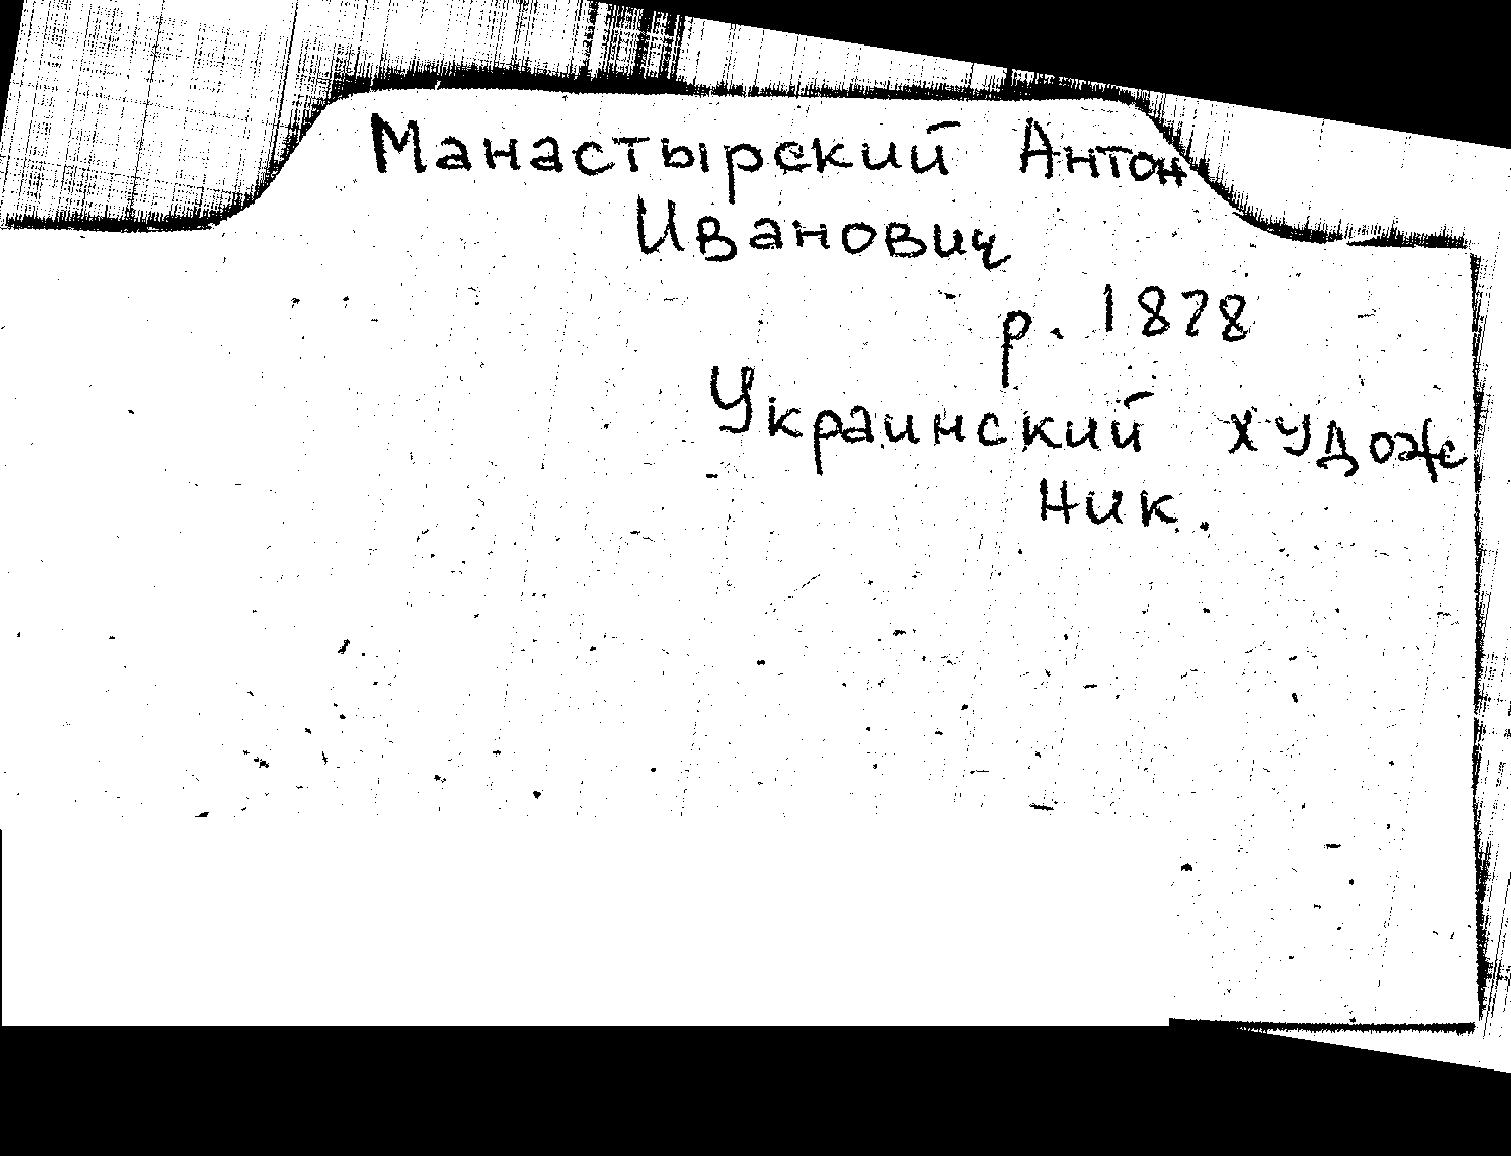 Манастырский Антон
Иванович
р. 1878
Украинский худож
ник.